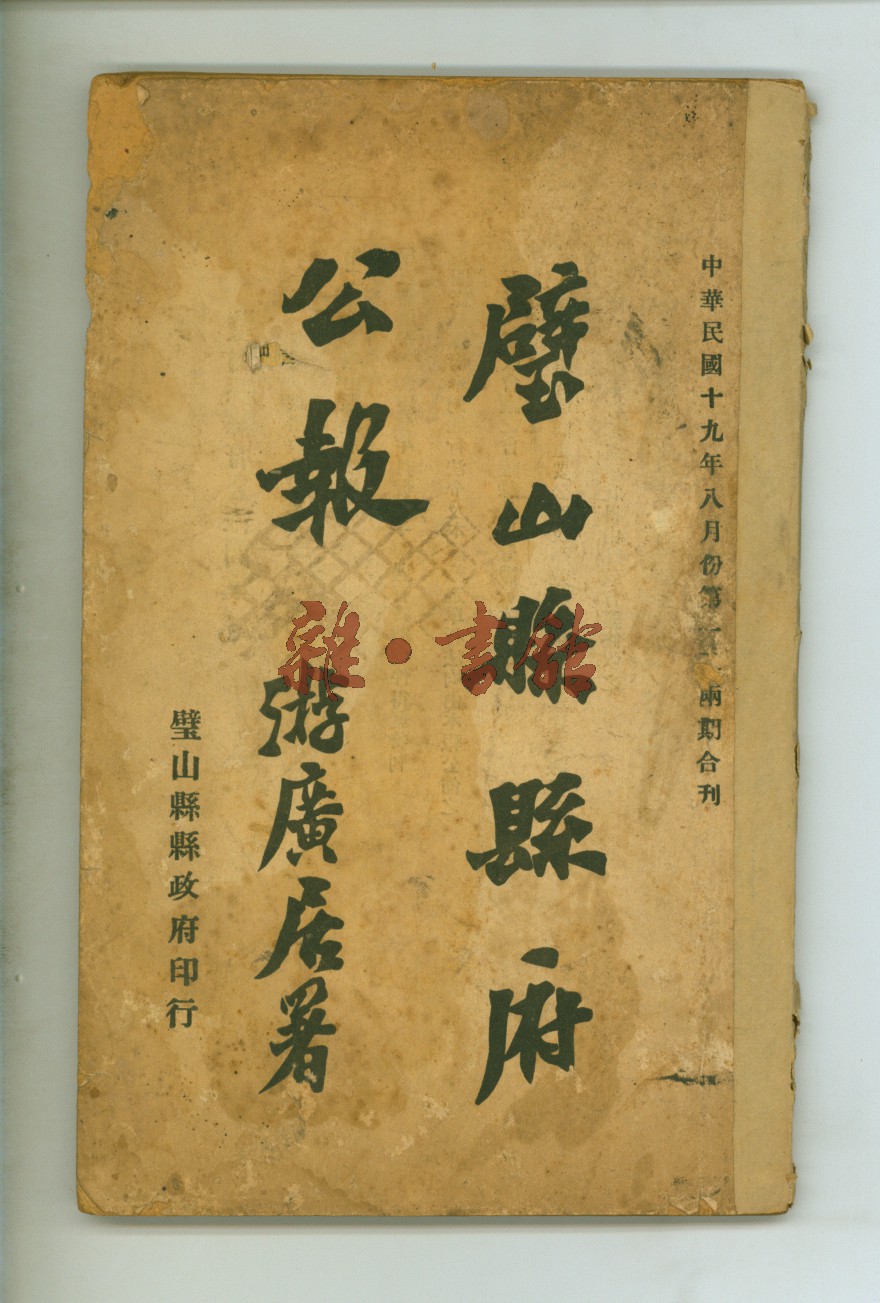 中華民國十九年八月份第一 兩期合刊
璧山縣縣府
公報 游廣居署
璧山縣縣政府印行
雜·書館